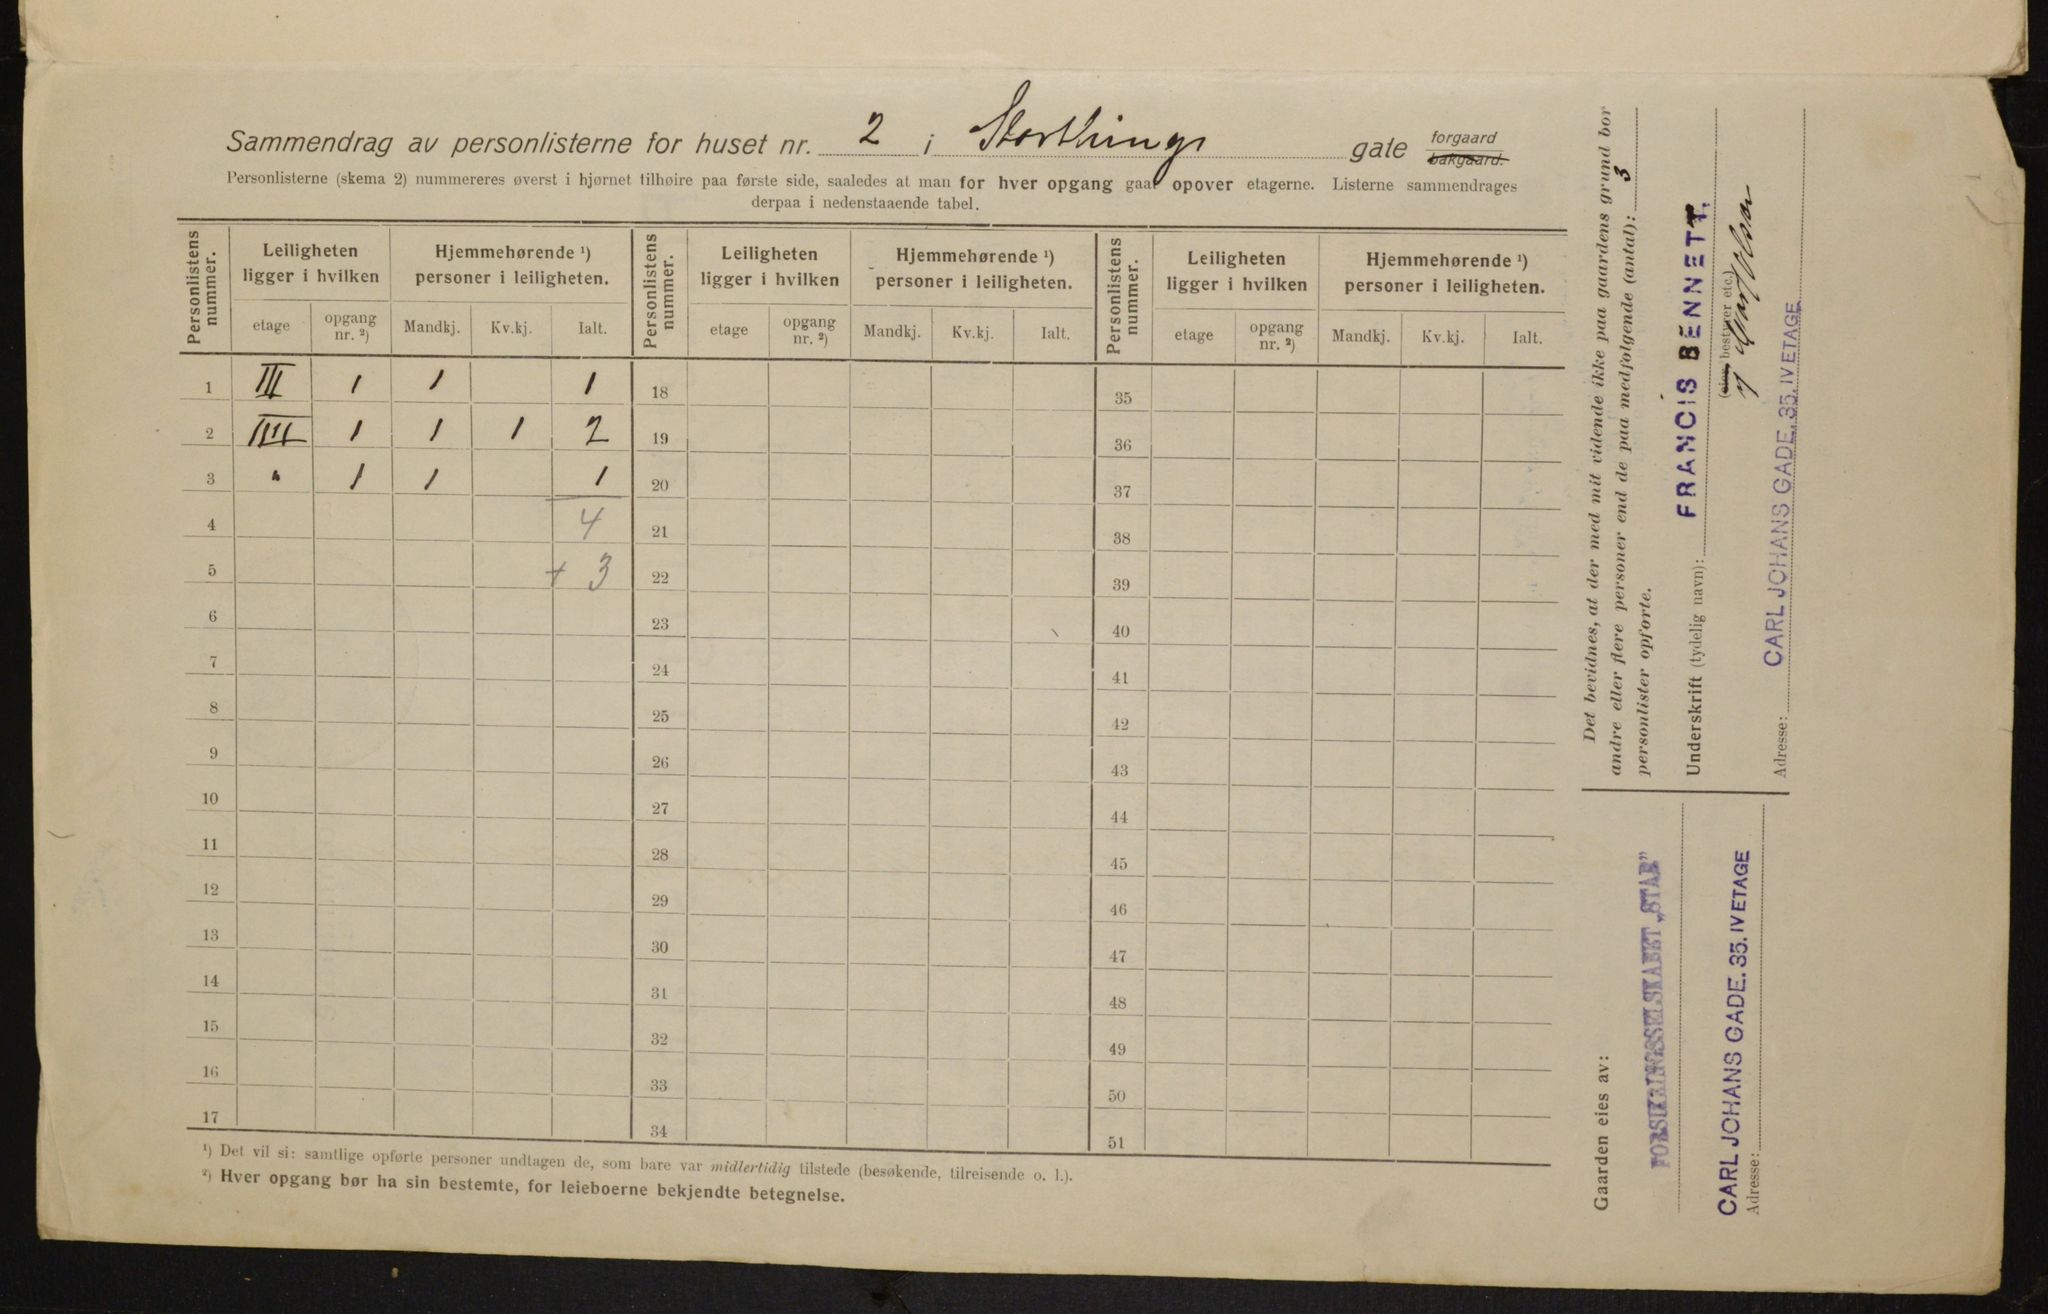 Sammendrag av personlisterne for huset nr. 2 i Storthings gate forgaard bakgaard.
Personlisterne (skema 2) nummereres øverst i hjørnet tilhøire paa første side, saaledes at man for hver opgang gaar opover etagerne. Listerne sammendrages
derpaa i nedenstaaende tabel.
Personlistens nummer. Leiligheten ligger i hvilken Hjemmehørende ¹) personer i leiligheten. Personlistens nummer. Leiligheten ligger i hvilken Hjemmehørende ¹) personer i leiligheten. Personlistens nummer. Leiligheten ligger i hvilken Hjemmehørende ¹) personer i leiligheten.
etage opgang nr. ²) Mandkj. Kv.kj. Ialt. etage opgang nr. ²) Mandkj. Kv.kj. Ialt. etage opgang nr. ²) Mandkj. Kv.kj. Ialt.
1 III 1 1 1 18 35
2 IIII 1 1 1 2 19 36
3 " 1 1 1 20 37
4 4 21 38
5 + 3 22 39
6 23 40
7 24 41
8 25 42
9 26 43
10 27 44
11 28 45
12 29 46
13 30 47
14 31 48
15 32 49
16 33 50
17 34 51
¹) Det vil si: samtlige opførte personer undtagen de, som bare var midlertidig tilstede (besøkende, tilreisende o. l.).
²) Hver opgang bør ha sin bestemte, for leieboerne bekjendte betegnelse.
Det bevidnes, at der med mit vidende ikke paa gaardens grund bor
andre eller flere personer end de paa medfølgende (antal): 3
personlister opførte.
Underskrift (tydelig navn): FRANCIS BENNETT.
(eier, bestyrer etc.)
Adresse: CARL JOHANS GADE. 35. IV ETAGE
Gaarden eies av:
FORSIKRINGSSELSKABET „STAR"
CARL JOHANS GADE. 35. IV ETAGE
Adresse: